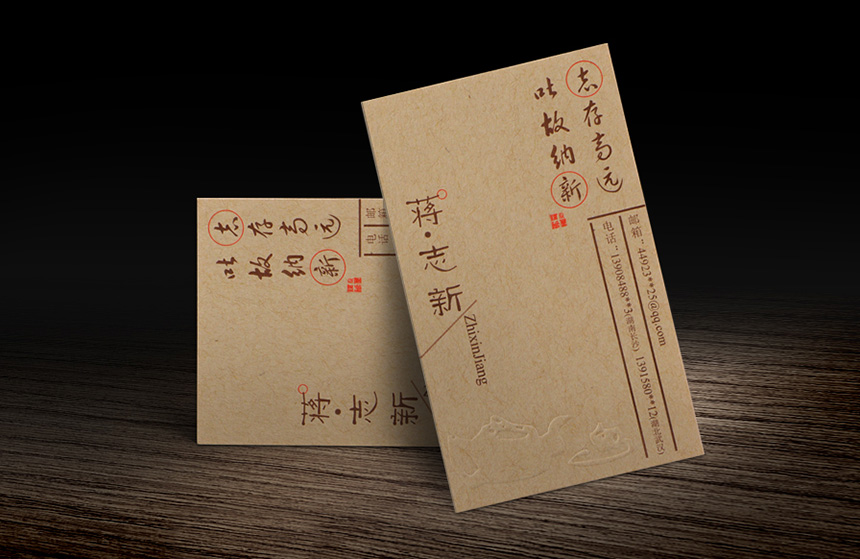 志存高远
吐故纳新
邮箱：44923**25@qq.com
电话：13908488**3(湖南长沙) 1391580**12(湖北武汉)
蒋·志新
ZhixinJiang
志存高远
吐故纳新
邮箱
电话
蒋·志新